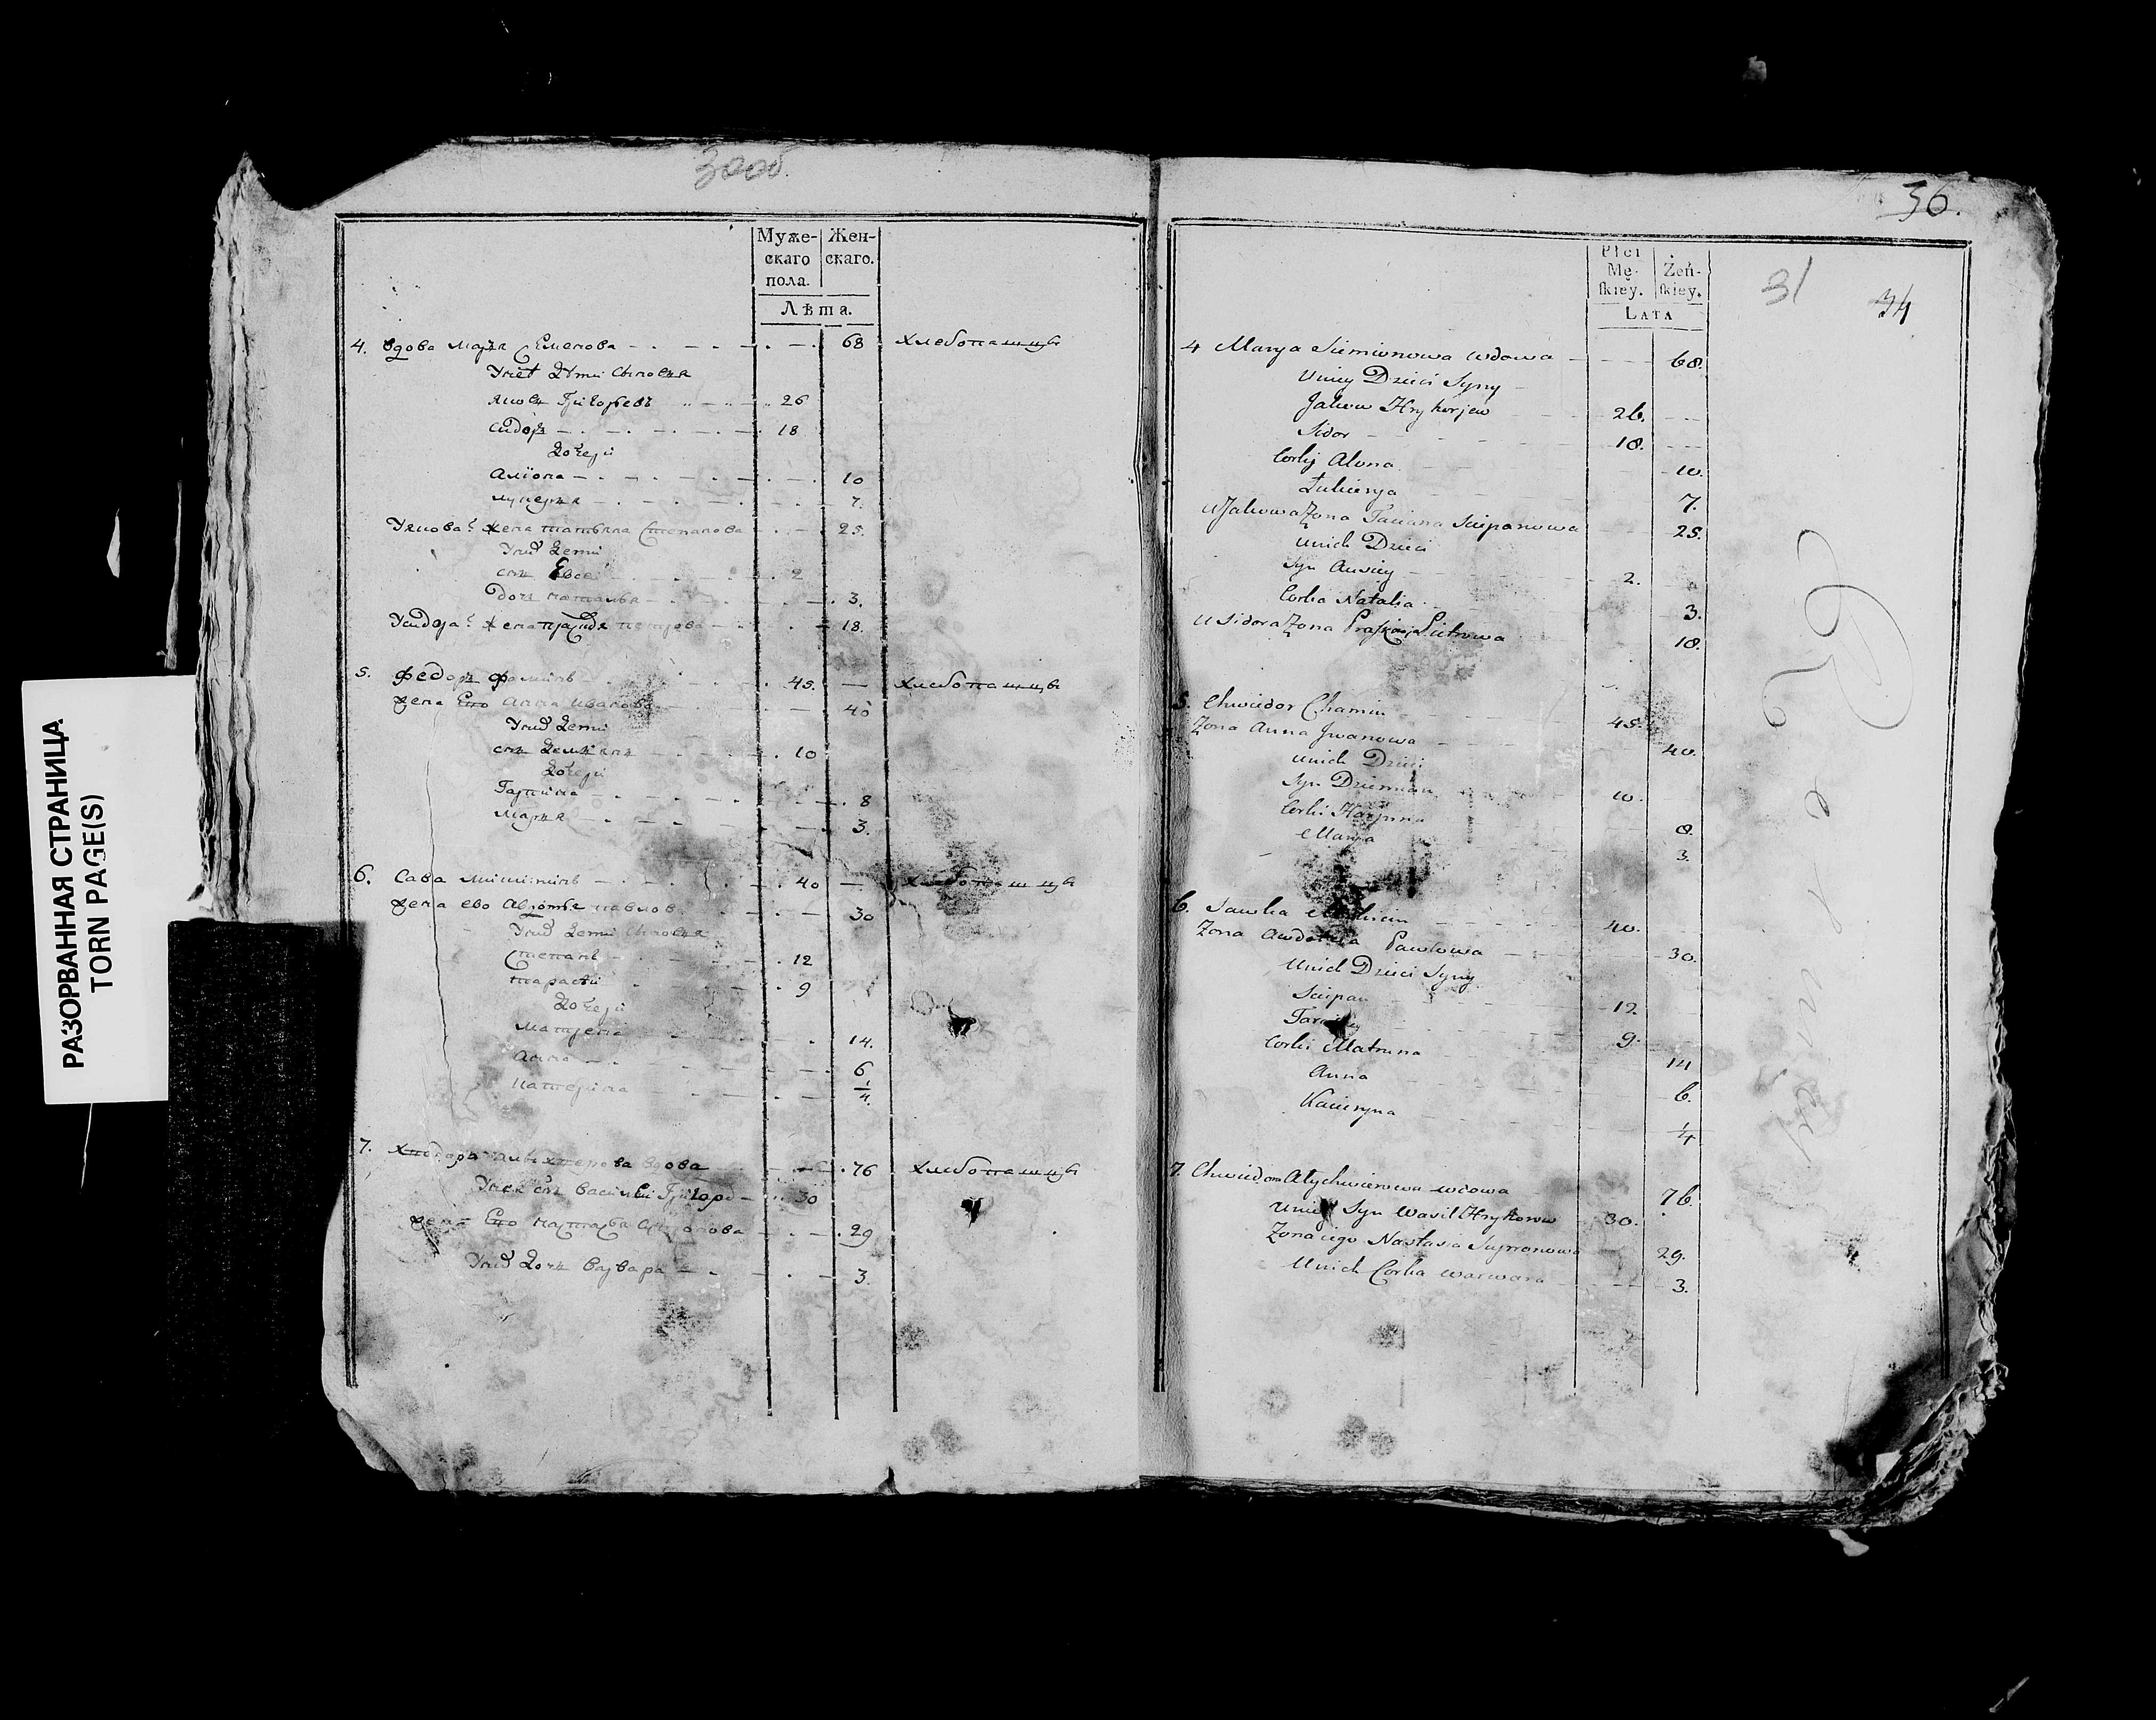 30 об.
Муже-
скаго
пола.
Жен-
скаго.
Лѣта.
4. вдова Маря Семенова 68 хлебопашцы
У неѣ дѣти сыновья
Яков Григорьевъ 26
Сидоръ 18
дочери
Алiона 10
Лукеря 7.
У Якова жена Татьяна Степанова 25.
У них дети
сын 2
дочь Наталья 3.
У Сидора жена Петрова 18.
5. Федоръ Фоминъ 45. — хлебопашцы
жена Ево Анна Иванова 40
У них дети
сын Демьян 10
дочери
Гарпина 8
Маря 3.
6. Сава Микитинъ 40 — хлебопашцы
жена ево Авдотья Павлов 30
У них дети сыновья
Степанъ 12
Тарасъ 9
дочери
Матрена 14.
Анна 6
Катерина 1/4.
7. вдова 76 хлебопашцы
У нея сын Василей Григорь 30
жена Ево 29
У них дочь Варвара 3.
РАЗОРВАННАЯ СТРАНИЦА
TORN PAGE(S)
36.
Płci
Mę-
skiey.
Żeń-
skiey.
LATA
31
34
4 Marya Siemionowa wdowa 68.
Uniey Dzieci Syny
Jakow Hryhorjew 26.
Sidor 18.
Corki Alona 10.
Łukierya 7.
U Jakowa Zona Taciana Sciepanowa 25.
Unich Dzieci
Syn Awsiey 2.
Corka Natalia 3.
U Sidora Zona Praskowja Pietrowa 18.
5. Chwiedor Chamin 45.
Zona Anna Jwanowa 40.
Unich Dzieci
Syn Dziemian 10.
Corki Harpina 8.
Marya 3.
6. Sawka 40.
Zona Awdotia Pawłowa 30.
Unich Dzieci Syny
Sciepan 12.
9.
Corki Matruna 14
Anna 6.
Kacieryna 1/4
7. Chwiedora Ałychwierowa wdowa 76.
Uniey Syn Wasil Hryhorew 30.
Zona iego Nastasia 29.
Unich Corka Warwara 3.